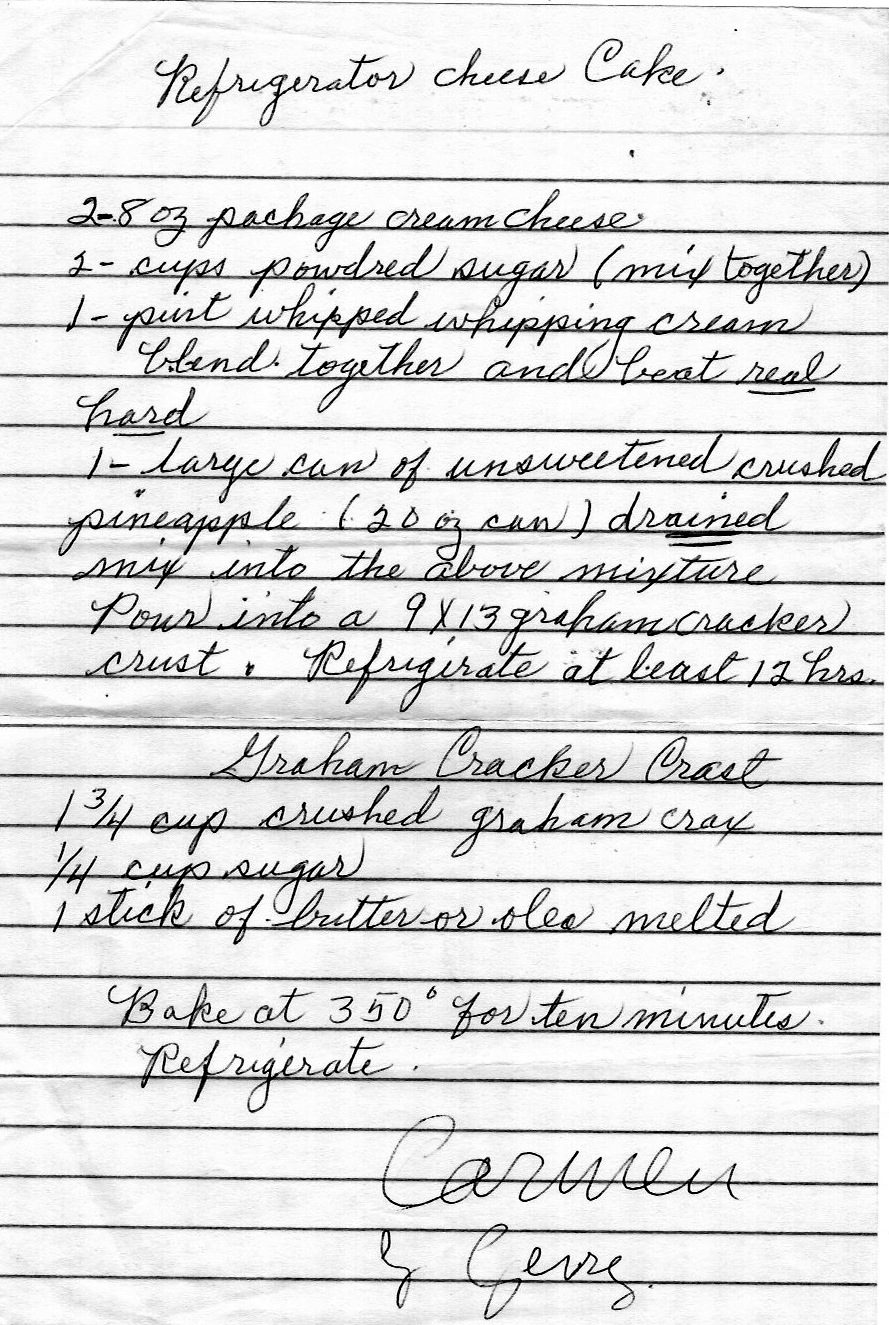 Refrigerator cheese Cake.
2-8 oz package cream cheese
2- cups powdred sugar (mix together)
1- pint whipped whipping cream
blend together and beat real
hard
1- large can of unsweetened crushed
pineapple (20 oz can) drained
mix into the above mixture
Pour into a 9X13 graham cracker
crust. Refrigirate at least 12 hrs.
Graham Cracker Crast
1 3/4 cup crushed graham crax
1/4 cup sugar
1 stick of butter or oleo melted
Bake at 350° for ten minutes.
Refrigerate.
Carmen